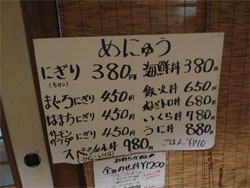 めにゅう
にぎり 380円 海鮮丼 380円
まぐろにぎり 450円 鉄火丼 650円
はまちにぎり 450円 ねぎトロ丼 680円
サーモン 450円 いくら丼 780円
うに丼 880円
スペシャル丼 980円 ごはん